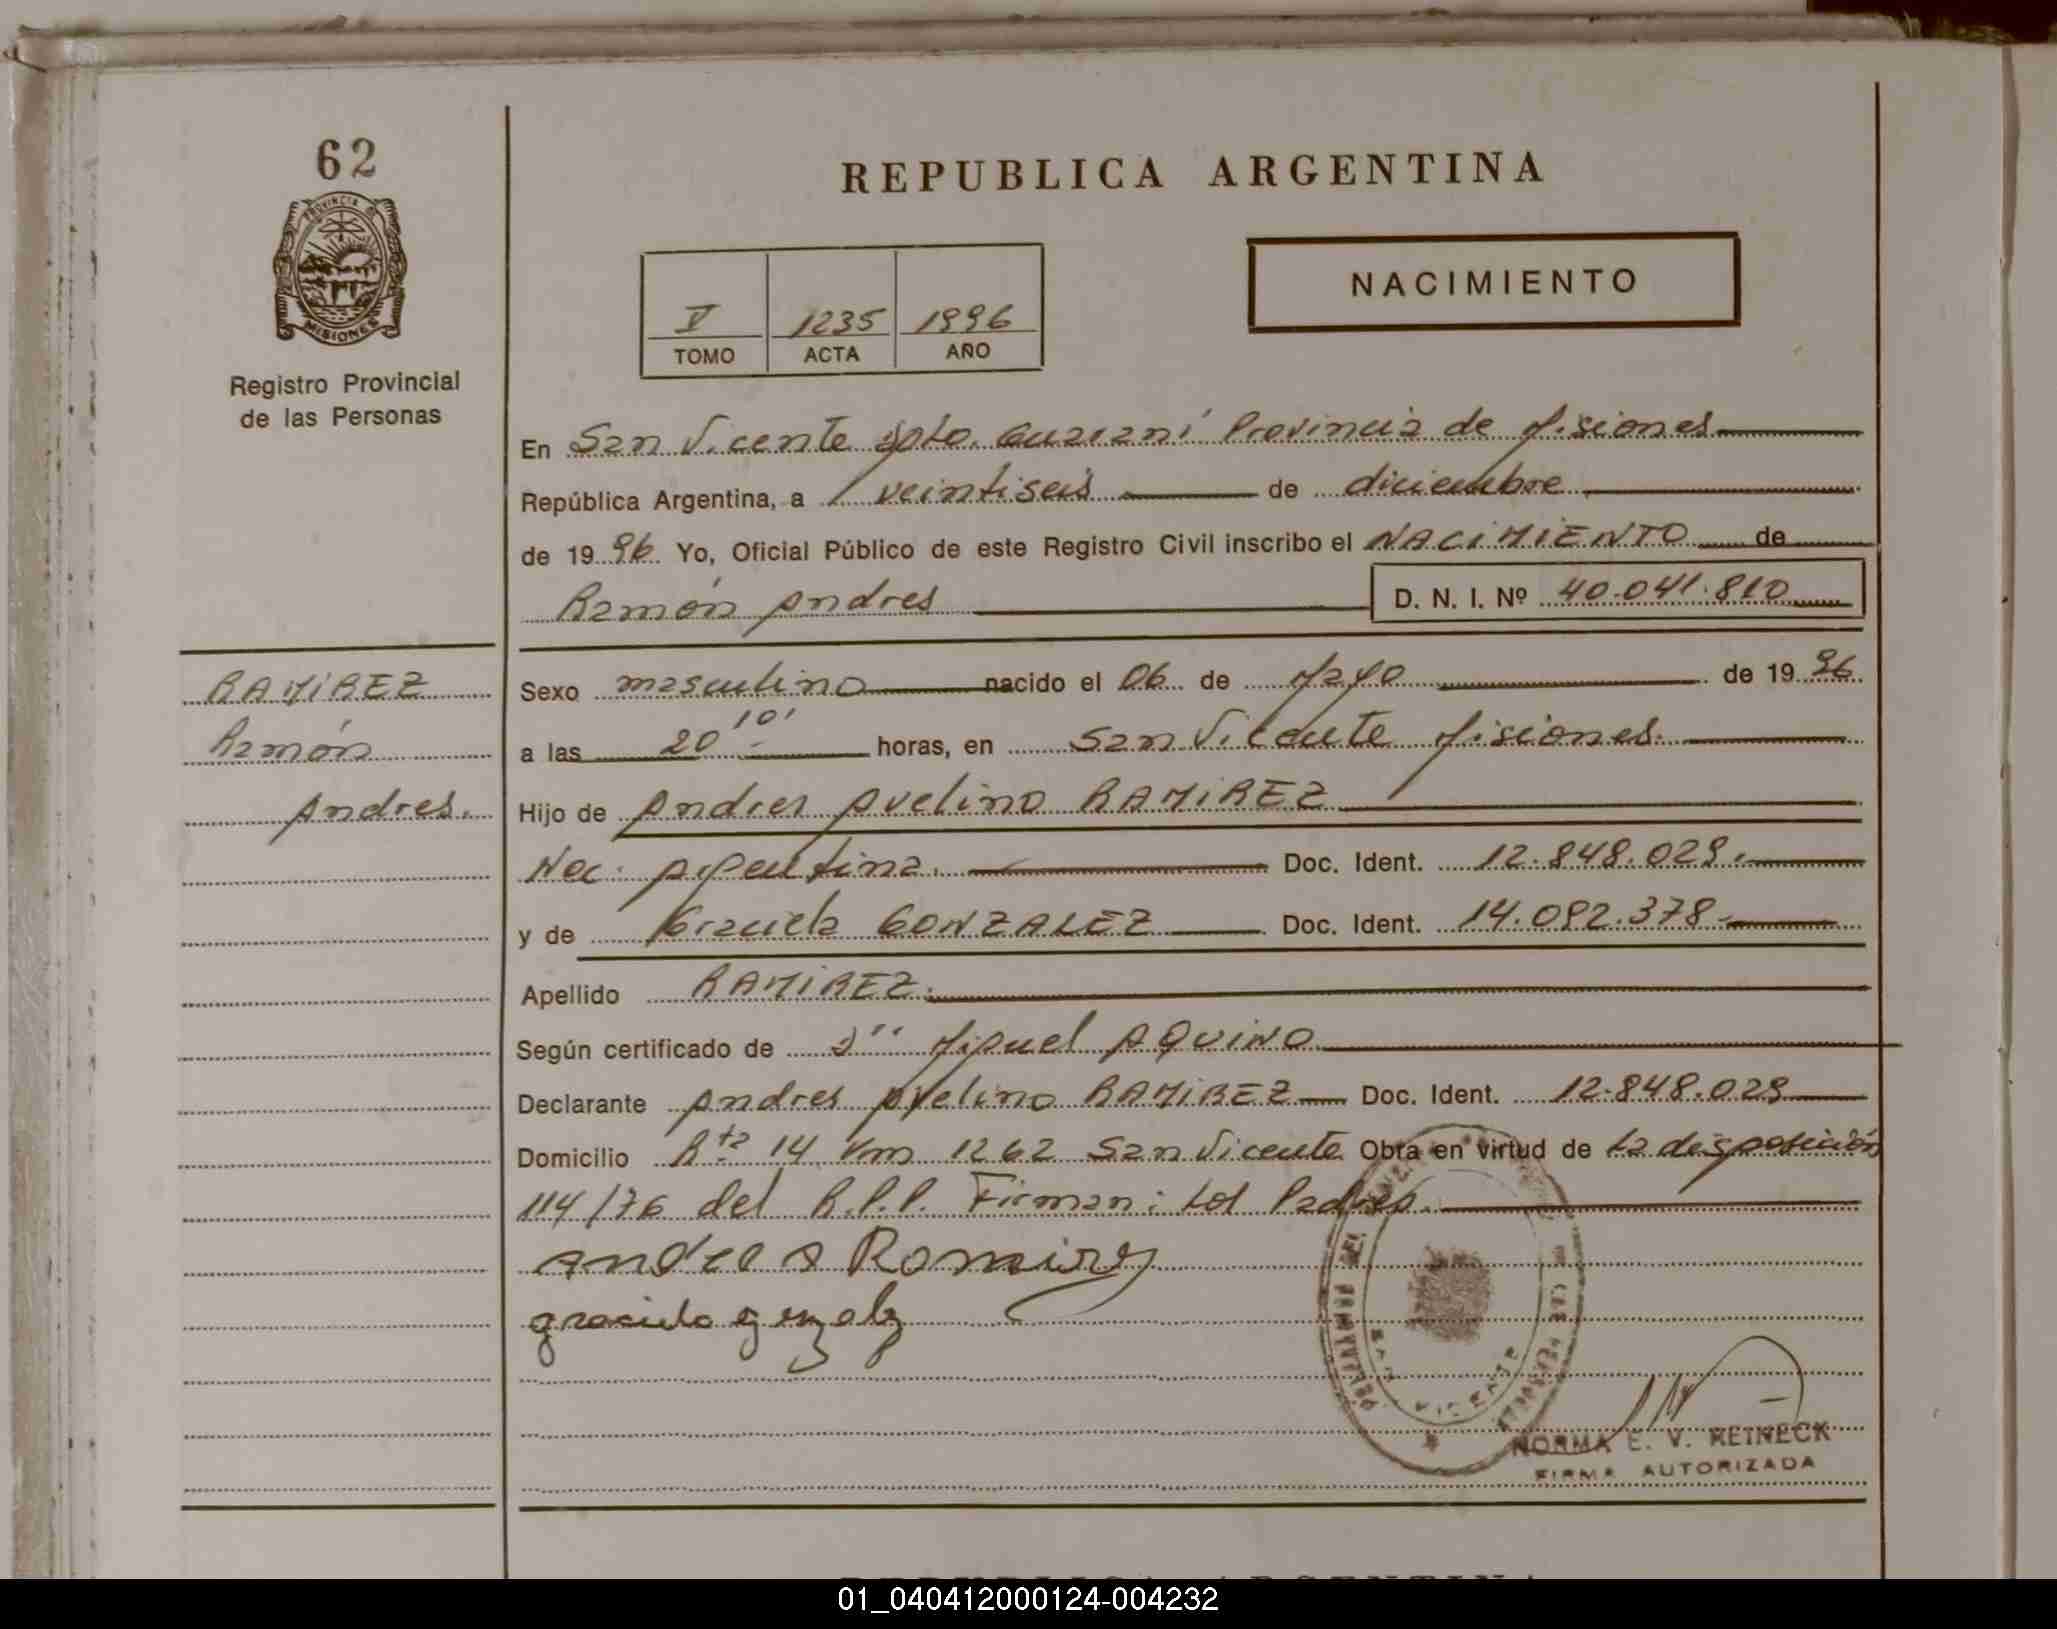 62
PROVINCIA DE
MISIONES
Registro Provincial
de las Personas
REPUBLICA ARGENTINA
NACIMIENTO
V 1235 1996
TOMO ACTA AÑO
En San Vicente Dpto. Guaraní Provincia de Misiones
República Argentina, a veintiseis de diciembre
de 1996 Yo, Oficial Público de este Registro Civil inscribo el NACIMIENTO de
Ramón Andres D. N. I. Nº 40.041.810
RAMIREZ
Ramón
Andres.
Sexo masculino nacido el 06 de Mayo de 1996
a las 20 10' horas, en San Vicente Misiones.
Hijo de Andres Avelino RAMIREZ
Nac. Argentina. Doc. Ident. 12.848.029.
y de Graciela GONZALEZ Doc. Ident. 14.092.378.
Apellido RAMIREZ.
Según certificado de Miguel AQUINO
Declarante Andres Avelino RAMIREZ Doc. Ident. 12.848.029
Domicilio Rta 14 Km 1262 San Vicente Obra en virtud de la disposición
114/76 del R.P.P. Firman: Los Padres.
Andres A Ramirez
graciela gonzalez
SAN VICENTE
NORMA E. V. REINECK
FIRMA AUTORIZADA
REPUBLICA ARGENTINA
01_040412000124-004232